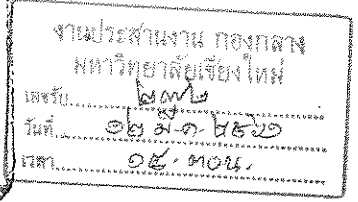 งานประสานงาน กองกลาง
มหาวิทยาลัยเชียงใหม่
เลขรับ ๒๗๒
วันที่ ๑๒ มี.ค. ๒๕๖๑
เวลา ๑๕.๓๐น.